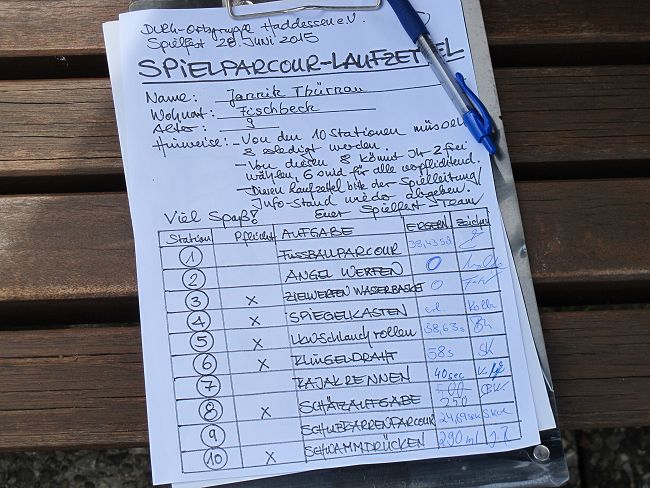 DUEK-Ortsgruppe Haddessen e.V.
Spielfest 28. JUNI 2015
SPIELPARCOUR-LAUFZETTEL
Name: Jannik Thürnau
Wohnort: Fischbeck
Alter: 9
Hinweise: - Von den 10 Stationen müssen
8 erledigt werden.
- Von diesen 8 könnt Ihr 2 frei
wählen, 6 sind für alle verpflichtend.
- Diesen Laufzettel bitte der Spielleitung/
Info-Stand wieder abgeben.
Viel Spaß! Euer Spielfest-Team
Station Pflicht AUFGABE ERGEBN. Zeichen
1 FUSSBALLPARCOUR
2 ANGEL WERFEN 0
3 X ZIELWERFEN WASERBASKE 0
4 X SPIEGELKASTEN erl.
5 X LKWSchlauch rollen 38,63s
6 X KLINGELDRAHT 58s SK
7 KAJAKRENNEN 40sec
8 X SCHÄTZAUFGABE 500 250
9 SCHUBKARRENPARCOUR
10 X SCHWAMMDRÜCKEN 290 ml